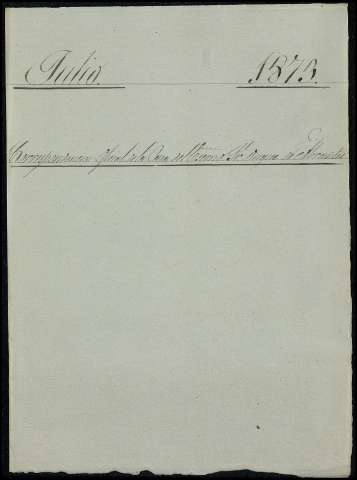 Julio. 1873.
Correspondencia oficial de la Casa del Excmo. Sr. Duque de